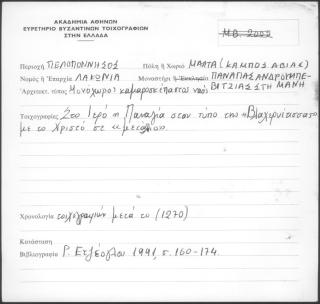 ΑΚΑΔΗΜΙΑ ΑΘΗΝΩΝ
ΕΥΡΕΤΗΡΙΟ ΒΥΖΑΝΤΙΝΩΝ ΤΟΙΧΟΓΡΑΦΙΩΝ
ΣΤΗΝ ΕΛΛΑΔΑ
ΜΒ. 2002
Περιοχή ΠΕΛΟΠΟΝΝΗΣΟΣ Πόλη ή Χωριό ΜΑΛΤΑ (ΚΑΜΠΟΣ ΑΒΙΑΣ)
Νομός ή Ἐπαρχία ΛΑΚΩΝΙΑ Μοναστήρι ἢ Ἐκκλησία
Ἀρχιτεκτ. τύπος Μονόχωρος καμαροσκέπαστος ναός ΣΤΗ ΜΑΝΗ
Τοιχογραφίες Στο Ιερό η Παναγία στον τύπο της «Βλαχερνίτισσας»
με το Χριστό σε
Χρονολογία τοιχογραφιών μετά το (1270)
Κατάσταση
Βιβλιογραφία Ρ. Ετζέογλου 1991, σ. 160-174.